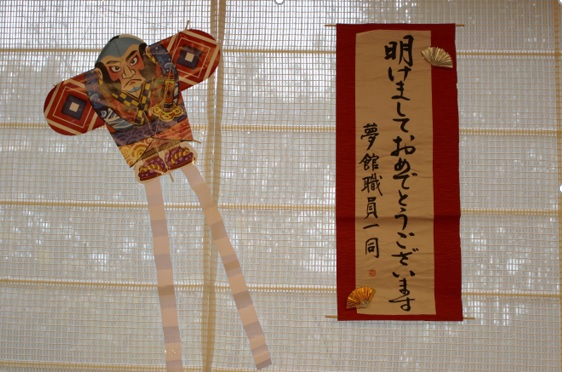 明けましておめでとうございます
夢館職員一同